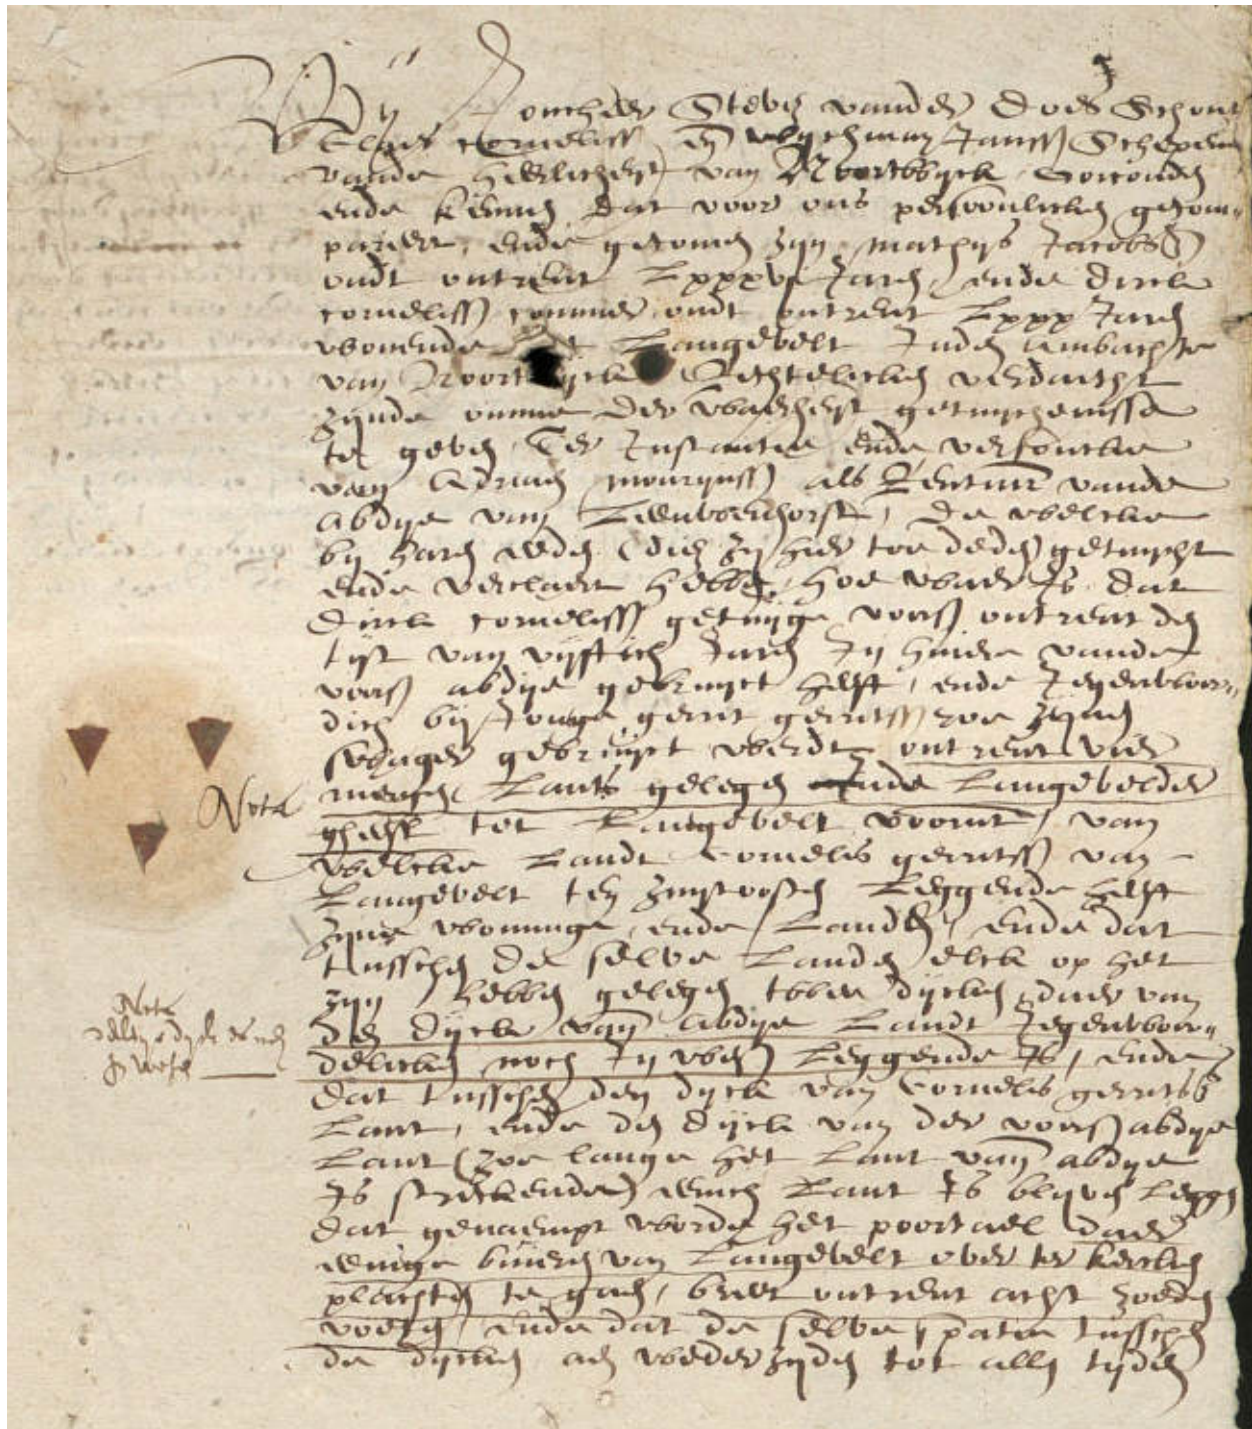 Wij Joncheer Steven vander Does Schout
Claes Cornelisz en Jansz Schepenen
vande heerlicheyt van Noortwyck Oirconden
ende kennen dat voor ons persoonlicken gecom-
pareert ende gecomen zyn Mathys Jacobsz
oudt ontrent Lxxxvi Jaren ende Dirck
Cornelisz oudt ontrent Lxxx Jaren
wonende Langevelt Inden Ambachte
van Noortwyck Rechtelicken verdaecht
zynde omme der waerheyt getuychenisse
te geven Ter Instantie ende versoucke
van Adriaen Mourynsz als Rentmr vande
abdye van Leeuwenhorst, De welcke
by haren eeden (dien zy hier toe deden) getuycht
ende verclaert hebben, hoe waer Is dat
Dirck Cornelisz getuyge vorsz ontrent den
tyt van vyftich Jaren In huere vande
vorsz abdye gebruyct heeft, ende Jegenwoor-
dich by Jonge Gerrit Gerritsz zynen
swager gebruyct werdt ontrent vier
mergen Lants gelegen Inde Langevelder
gheest tot Langevelt voornt, van
welcke Landt Cornelis Gerritsz van
Langevelt ten zuytoosten Leggende heeft
zyne wooninge ende Landen, ende dat
tusschen de selve Landen elck op het
zyn hebben gelegen twee dycken daer van
den dyck vann abdye Landt Jegenwoor-
delicken noch In wesen Leggende Is, ende
dat tusschen den dyck van Cornelis Gerritsz
Lant, ende den dyck van der vorsz abdye
Lant (zoe lange het Lant vann abdye
Is streckende) eenich Lant Is blyven leggen
dat genaempt worde het poortael daer
eenige buieren van Langevelt over te kercken
plachten te gaen, breet ontrent acht
voeten, ende dat de selve spatie tusschen
de dycken aen weder zyden tot allen tyden
Nota
Nota
dyck is noch
In wesen